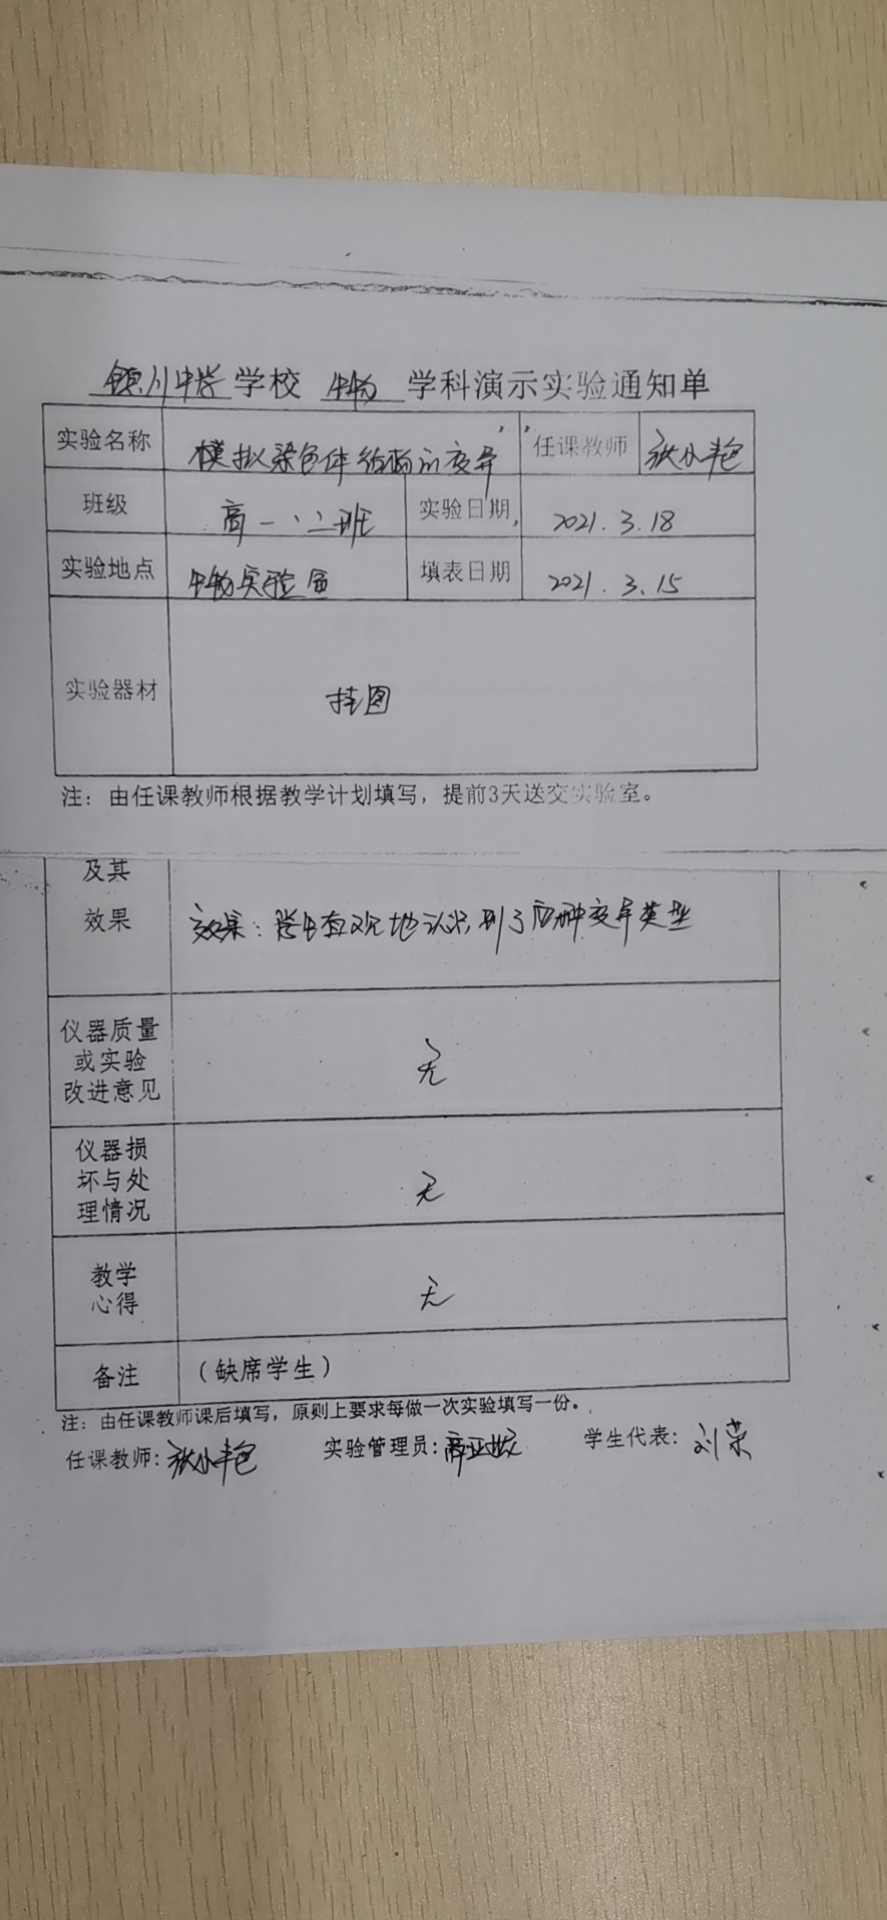 镇川中学学校 生物 学科演示实验通知单
实验名称 模拟染色体结构的变异 任课教师 张小艳
班级 高一、二班 实验日期 2021.3.18
实验地点 生物实验室 填表日期 2021.3.15
实验器材 挂图
注：由任课教师根据教学计划填写，提前3天送交实验室。
及其
效果 效果：学生直观地认识到了四种变异类型
仪器质量
或实验
改进意见 无
仪器损
坏与处
理情况 无
教学
心得 无
备注 （缺席学生）
注：由任课教师课后填写，原则上要求每做一次实验填写一份。
任课教师：张小艳 实验管理员： 学生代表：刘荣